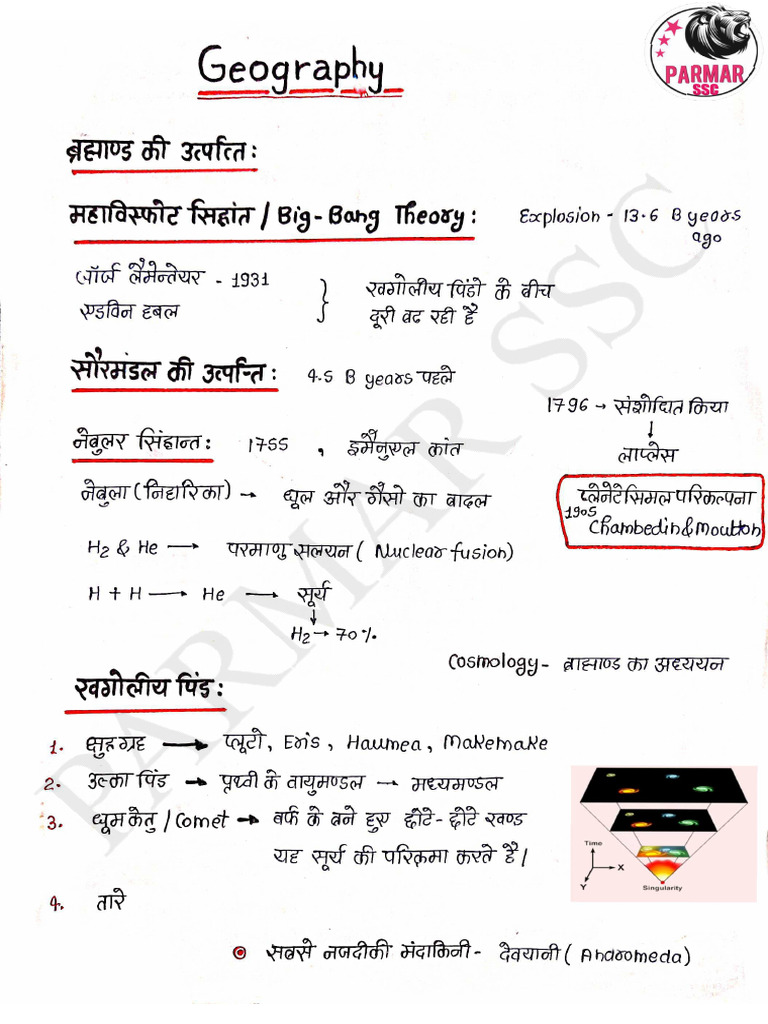 PARMAR
SSC
Geography
ब्रह्माण्ड की उत्पत्ति :
महाविस्फोट सिद्धांत / Big-Bang Theory : Explosion - 13.6 B years ago
जॉर्ज लैमेन्तेयर - 1931
एडविन हबल
} खगोलीय पिंडो के बीच
दूरी बढ रही है
सौरमंडल की उत्पत्ति : 4.5 B years पहले
1796 → संशोधित किया
↓
लाप्लेस
नेबुलर सिद्दान्त : 1755 , इमैनुएल कांत
नेबुला (निहारिका) → धूल और गैसो का बादल
प्लेनेटेसिमल परिकल्पना
1905
Chambedin & Moulton
H2 & He → परमाणु सलयन ( Nuclear fusion)
H + H → He → सूर्य
↓
H2 → 70%
Cosmology - ब्राह्माण्ड का अध्ययन
खगोलीय पिंड :
1. क्षुद्रग्रह → प्लूटो, Eris, Haumea, Makemake
2. उल्का पिंड → पृथ्वी के वायुमण्डल → मध्यमण्डल
3. धूमकेतु / Comet → बर्फ के बने हुए छोटे-छोटे खण्ड
यह सूर्य की परिक्रमा करते है।
Time
X
Y
Singularity
4. तारे
सबसे नजदीकी मंदाकिनी - देवयानी ( Andromeda)
PARMAR SSC